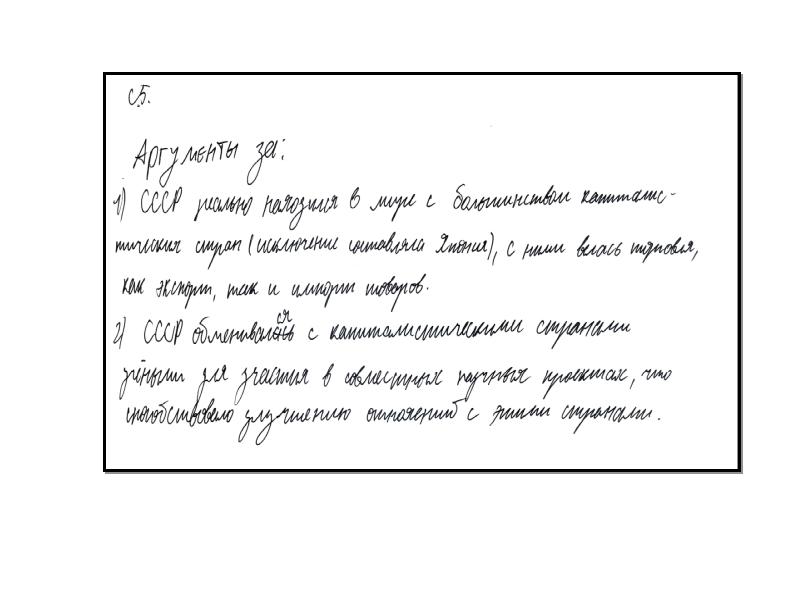 С5.
Аргументы за:
1) СССР реально находился в мире с большинством капиталис-
тических стран (исключение составляла Япония), с ними велась торговля,
как экспорт, так и импорт товаров.
2) СССР обменивался с капиталистическими странами
учёными для участия в совместных научных проектах, что
способствовало улучшению отношений с этими странами.